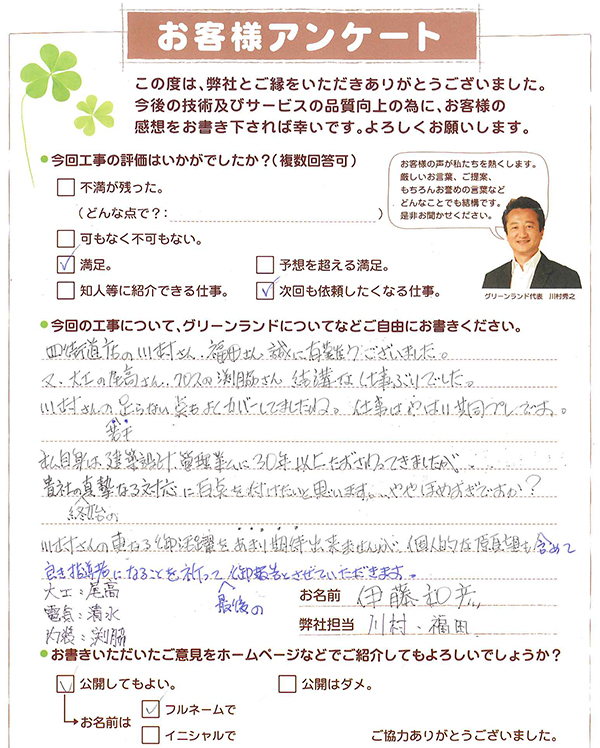 お客様アンケート
この度は、弊社とご縁をいただきありがとうございました。
今後の技術及びサービスの品質向上の為に、お客様の
感想をお書き下されば幸いです。よろしくお願いします。
●今回工事の評価はいかがでしたか?(複数回答可)
お客様の声が私たちを熱くします。
厳しいお言葉、ご提案、
もちろんお誉めの言葉など
どんなことでも結構です。
是非お聞かせください。
グリーンランド代表 川村秀之
□ 不満が残った。
(どんな点で?: )
□ 可もなく不可もない。
☑ 満足。 □ 予想を超える満足。
□ 知人等に紹介できる仕事。 ☑ 次回も依頼したくなる仕事。
●今回の工事について、グリーンランドについてなどご自由にお書きください。
四街道店の川村さん、福田さん 誠に有難うございました。
又、大工の尾高さん、クロスの渕脇さん 結構な仕事ぶりでした。
川村さんの足らない点もよくカバーしてましたね。仕事はやはり共同プレーですよ。
若干
私自身は建築設計、管理業ムに30年以上たずさわってきましたが、
貴社の真摯なる対応に百点を付けたいと思います。ややほめすぎですか?
終始の
川村さんの更なる御活躍をあまり期待出来ませんが、個人的な願望も含めて
良き指導者になることを祈って御報告とさせていただきます。
最後の
大工:尾高
電気:清水
内装:渕脇
お名前 伊藤和彦
弊社担当 川村・福田
●お書きいただいたご意見をホームページなどでご紹介してもよろしいでしょうか?
☑ 公開してもよい。 □ 公開はダメ。
お名前は ☑ フルネームで
□ イニシャルで
ご協力ありがとうございました。